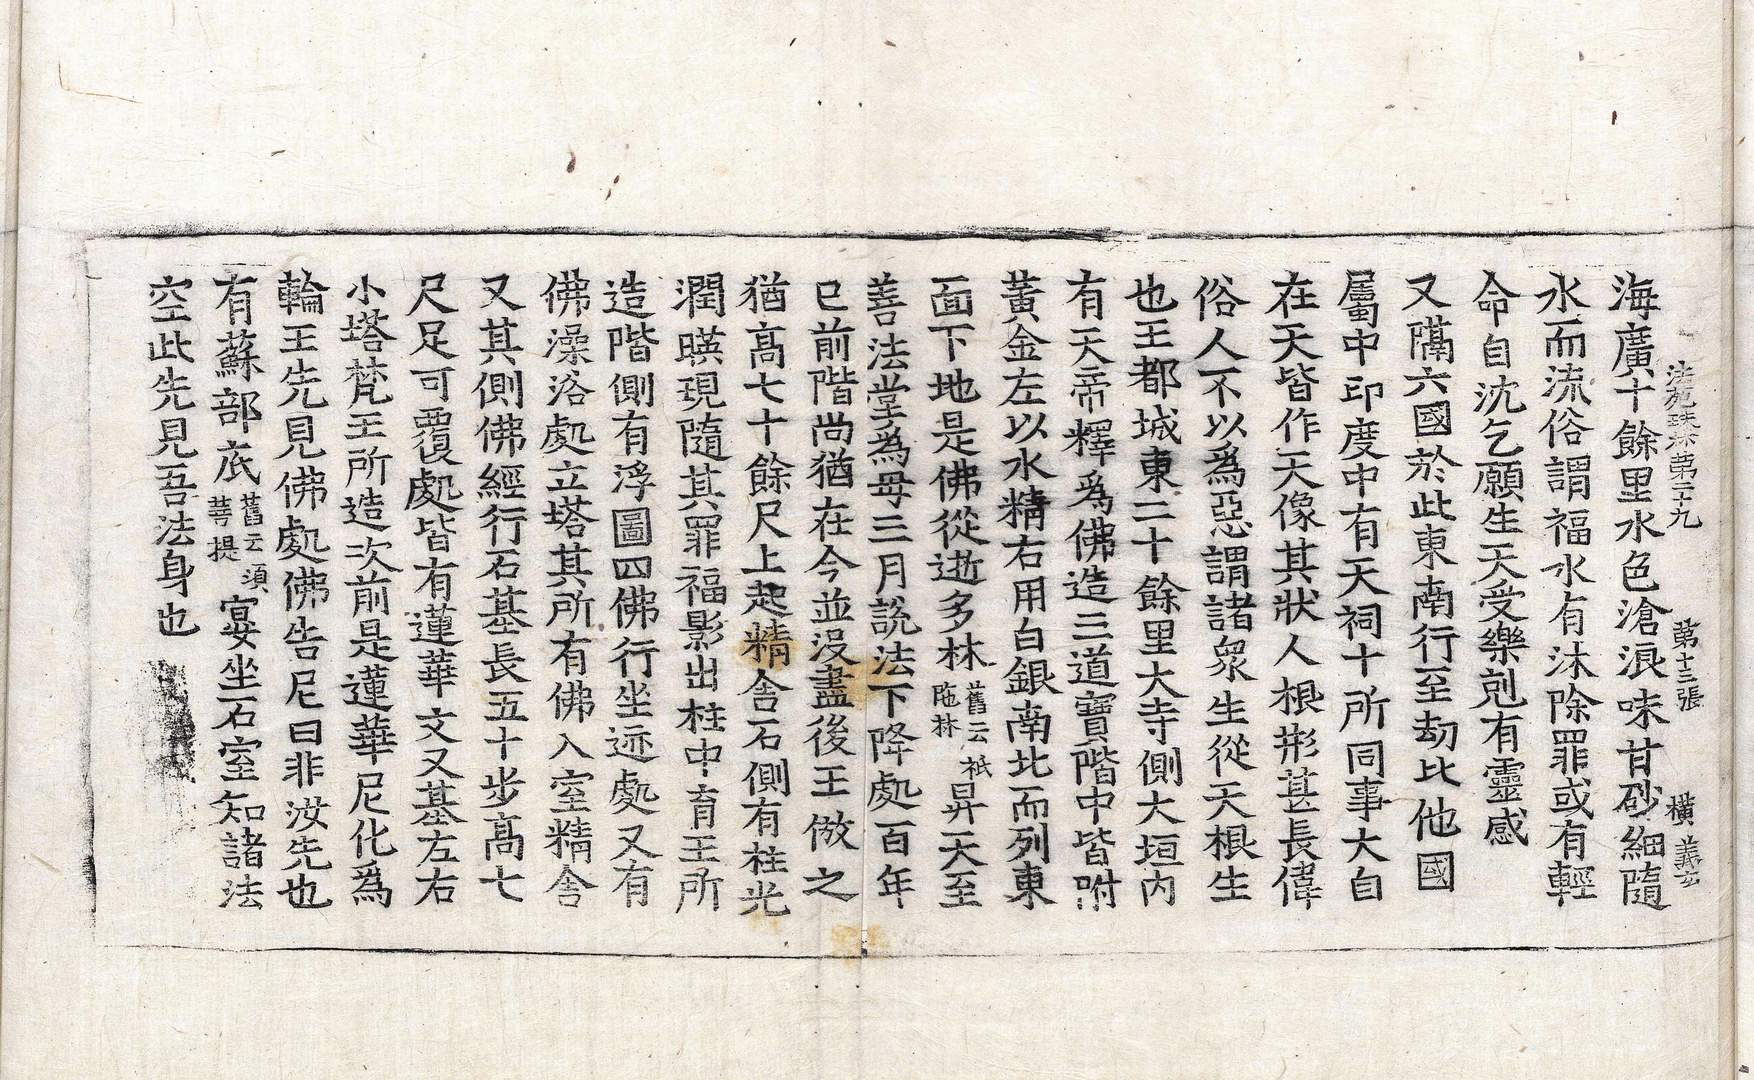 法苑珠林第二十九　第十三張　橫　義玄
海廣十餘里水色滄浪味甘砂細隨
水而流俗謂福水有沐除罪或有輕
命自沈乞願生天受樂剋有靈感
又隔六國於此東南行至劫比他國
屬中印度中有天祠十所同事大自
在天皆作天像其狀人根形甚長偉
俗人不以爲惡謂諸衆生從天根生
也王都城東二十餘里大寺側大垣內
有天帝釋爲佛造三道寶階中皆咐
黃金左以水精右用白銀南北而列東
面下地是佛從逝多林舊云祇陁林昇天至
善法堂爲母三月說法下降處百年
已前階尚猶在今並沒盡後王倣之
猶高七十餘尺上起精舍石側有柱光
潤暎現隨其罪福影出柱中育王所
造階側有浮圖四佛行坐迹處又有
佛澡浴處立塔其所有佛入室精舍
又其側佛經行石基長五十步高七
尺足可覆處皆有蓮華文又基左右
小塔梵王所造次前是蓮華尼化爲
輪王先見佛處佛告尼曰非汝先也
有蘇部底舊云須菩提宴坐石室知諸法
空此先見吾法身也